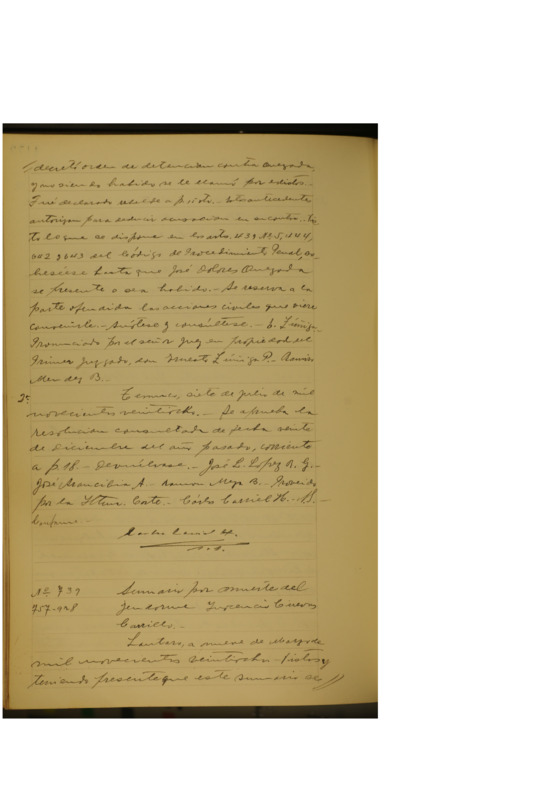 decretó orden de detencion contra Quezada
y no siendo habido se le llamó por edictos.-
Fué declarado rebelde a p. . Estos antecedentes
autorizan para deducir acusacion en su contra.- Vis
to lo que se dispone en los arts. 439 Nº 5, 444,
642 y 643 del Código de Procedimiento Penal, so
breséese hasta que José Dolores Quezada
se presente o sea habido.- Se reserva a la
parte ofendida las acciones civiles que viere
convenirle.- Anótese y consúltese.- E. Zúñiga.-
Pronunciado por el señor Juez en propiedad del
Primer Juzgado, don Ernesto Zúñiga P.- Ramón
Mendez B.-
2ª Temuco, siete de julio de mil
novecientos veintiocho.- Se aprueba la
resolucion consultada de fecha veinte
de Diciembre del año pasado, corriente
a p. 18.- Devuélvase.- José L. Lopez R. G.-
José Arancibia A.- Ramon Meza B.- Proveído
por la Iltma. Corte.- Cárlos Carriel H.- S.-
Conforme.-
Carlos Carriel H.
Nº 739
757-928
Sumario por muerte del
Jendarme Inocencio Cuevas
Carrillo.-
Lautaro, a nueve de Marzo de
mil novecientos veintiocho.- Vistos y
teniendo presente que este sumario se